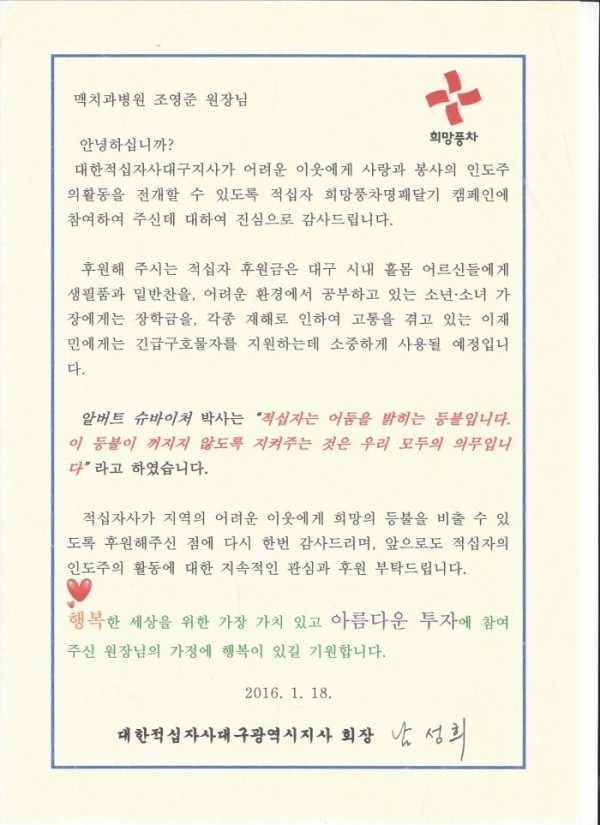 맥치과병원 조영준 원장님
희망풍차
안녕하십니까?
대한적십자사대구지사가 어려운 이웃에게 사랑과 봉사의 인도주
의활동을 전개할 수 있도록 적십자 희망풍차명패달기 캠페인에
참여하여 주신데 대하여 진심으로 감사드립니다.
후원해 주시는 적십자 후원금은 대구 시내 홀몸 어르신들에게
생필품과 밑반찬을, 어려운 환경에서 공부하고 있는 소년·소녀 가
장에게는 장학금을, 각종 재해로 인하여 고통을 겪고 있는 이재
민에게는 긴급구호물자를 지원하는데 소중하게 사용될 예정입니
다.
알버트 슈바이처 박사는 “적십자는 어둠을 밝히는 등불입니다.
이 등불이 꺼지지 않도록 지켜주는 것은 우리 모두의 의무입니
다” 라고 하였습니다.
적십자사가 지역의 어려운 이웃에게 희망의 등불을 비출 수 있
도록 후원해주신 점에 다시 한번 감사드리며, 앞으로도 적십자의
인도주의 활동에 대한 지속적인 관심과 후원 부탁드립니다.
행복한 세상을 위한 가장 가치 있고 아름다운 투자에 참여
주신 원장님의 가정에 행복이 있길 기원합니다.
2016. 1. 18.
대한적십자사대구광역시지사 회장 남성희